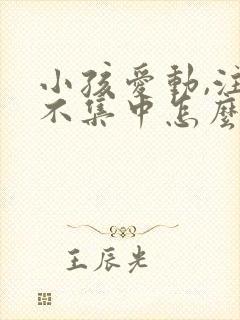 小孩愛動,注
不集中怎麼
王辰光